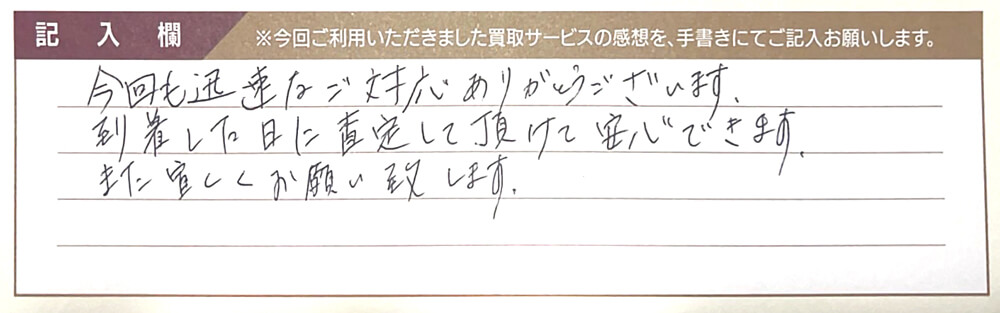 記入欄 ※今回ご利用いただきました買取サービスの感想を、手書きにてご記入お願いします。
今回も迅速なご対応ありがとうございます。
到着した日に査定して頂けて安心できます。
また宜しくお願い致します。